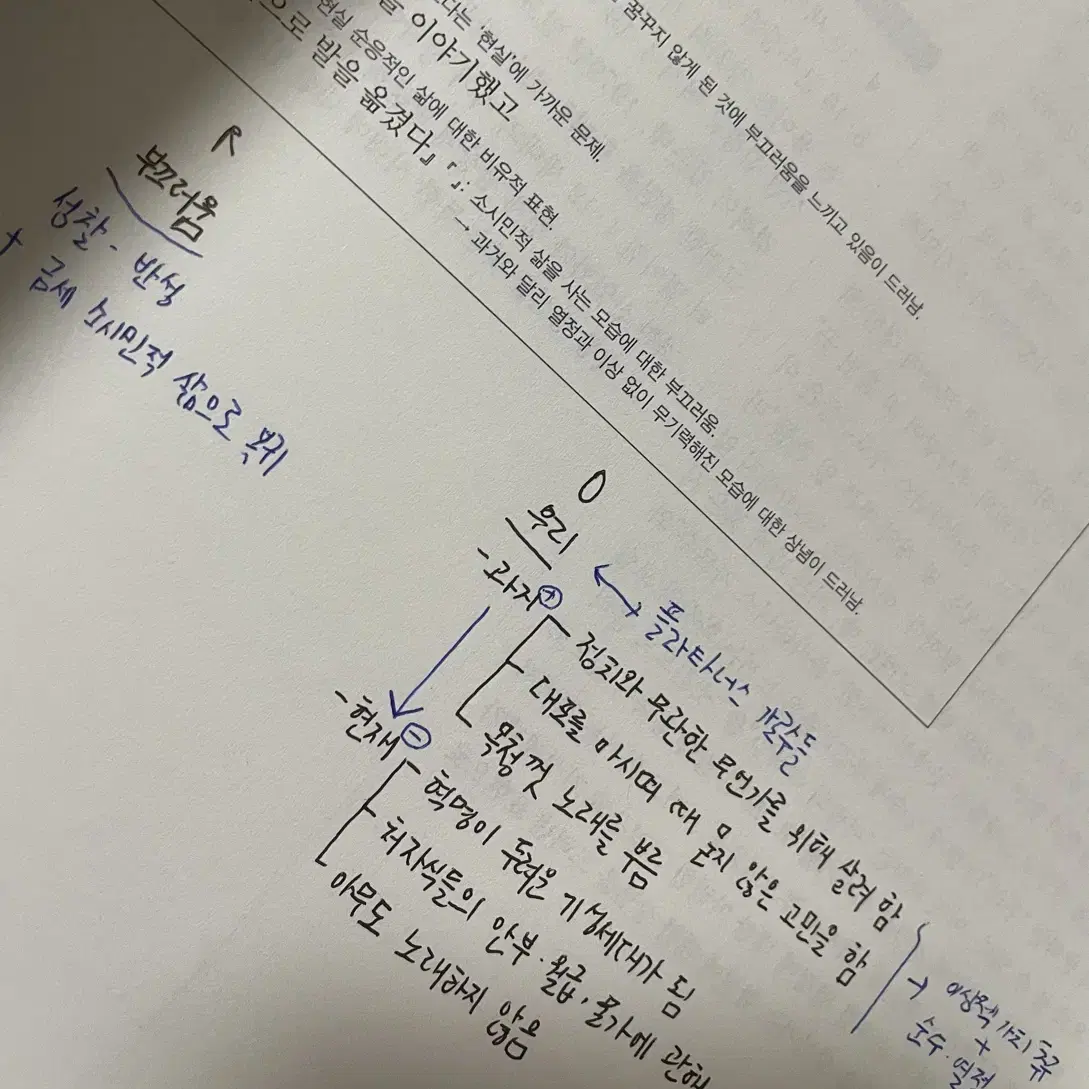 꿈꾸지 않게 된 것에 부끄러움을 느끼고 있음이 드러남.
다는 '현실'에 가까운 문제.
이야기했고
현실 순응적인 삶에 대한 비유적 표현.
으로 발을 옮겼다』 『 』: 소시민적 삶을 사는 모습에 대한 부끄러움.
→ 과거와 달리 열정과 이상 없이 무기력해진 모습에 대한 상념이 드러남.
R
부끄러움
성찰 · 반성
+ 금세 소시민적 삶으로 복귀
O
우리 ↔ 플라타너스 가로수들
- 과거 +
정치와 무관한 무언가를 위해 살려 함
대포를 마시며 때 묻지 않은 고민을 함
목청껏 노래를 부름
→ 이상적 가치 추구
+
순수 · 열정
- 현재 -
혁명이 두려운 기성세대가 됨
처자식들의 안부 · 월급, 물가에 관해
아무도 노래하지 않음